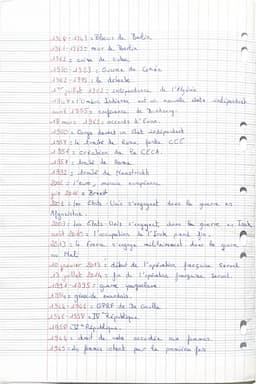 1948-1949 : Blocus de Berlin
1961-1989 : mur de Berlin
1962 : crise de Cuba
1950-1953 : Guerre de Corée
1962-1975 : la détente
1er juillet 1962 : indépendance de l'Algérie
1947 : l'Union Indienne est un nouvel état indépendant
avril 1955 : conférence de Bandung
18 mars 1962 : accords d'Evian
1960 : Congo devient un état indépendant
1957 : le traité de Rome fonde CEE
1951 : création de la CECA
1957 : traité de Rome
1992 : traité de Maastricht
l'euro, monnaie européenne
2016 : Brexit
2001 : les Etats-Unis s'engagent dans la guerre en
Afghanistan
2003 : les Etats-Unis s'engagent dans la guerre en Irak
l'occupation de l'Irak prend fin
2013 : la France s'engage militairement dans la guerre
au Mali
janvier 2013 : début de l'opération française Serval
juillet 2014 : fin de l'opération française Serval
1991-1995 : guerre yougoslavie
1994 : génocide rwandais
1944-1946 : GPRF de De Gaulle
1946-1958 : IVe République
1958 Ve République
1944 : droit de vote accordée aux femmes
1945 : les femmes votent pour la première fois